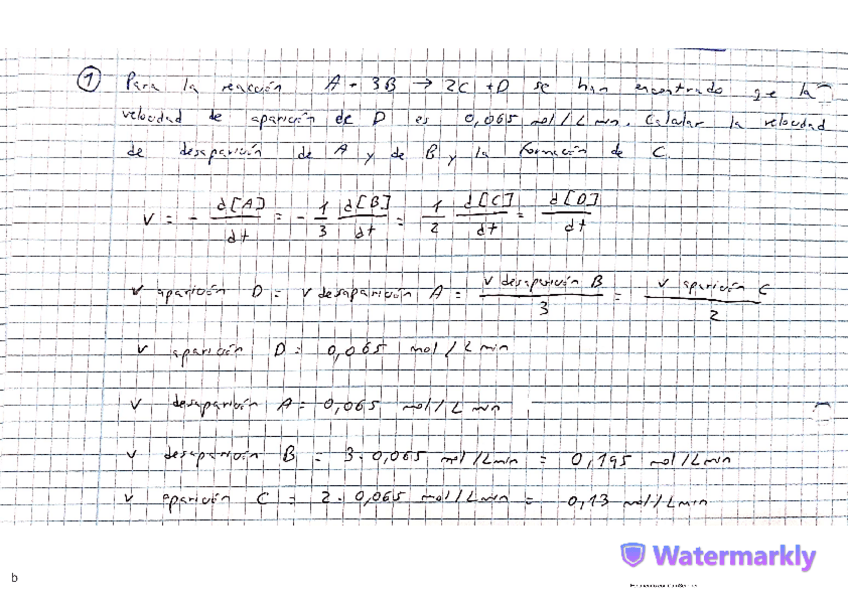 ① Para la reacción A + 3B → 2C + D se han encontrado qe la
velocidad de aparición de D es 0,065 mol/L min. Calcular la velocidad
de desaparición de A y de B y la formación de C.
V = - d[A]/dt = - 1/3 d[B]/dt = 1/2 d[C]/dt = d[D]/dt
v aparición D = v desaparición A = v desaparición B / 3 = v aparición C / 2
v aparición D = 0,065 mol/L min
v desaparición A = 0,065 mol/L min
v desaparición B = 3 · 0,065 mol/L min = 0,195 mol/L min
v aparición C = 2 · 0,065 mol/L min = 0,13 mol/L min
Watermarkly
b